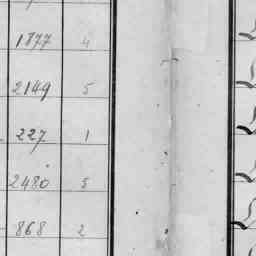 1877 4
2149 5
227 1
2480 5
868 2